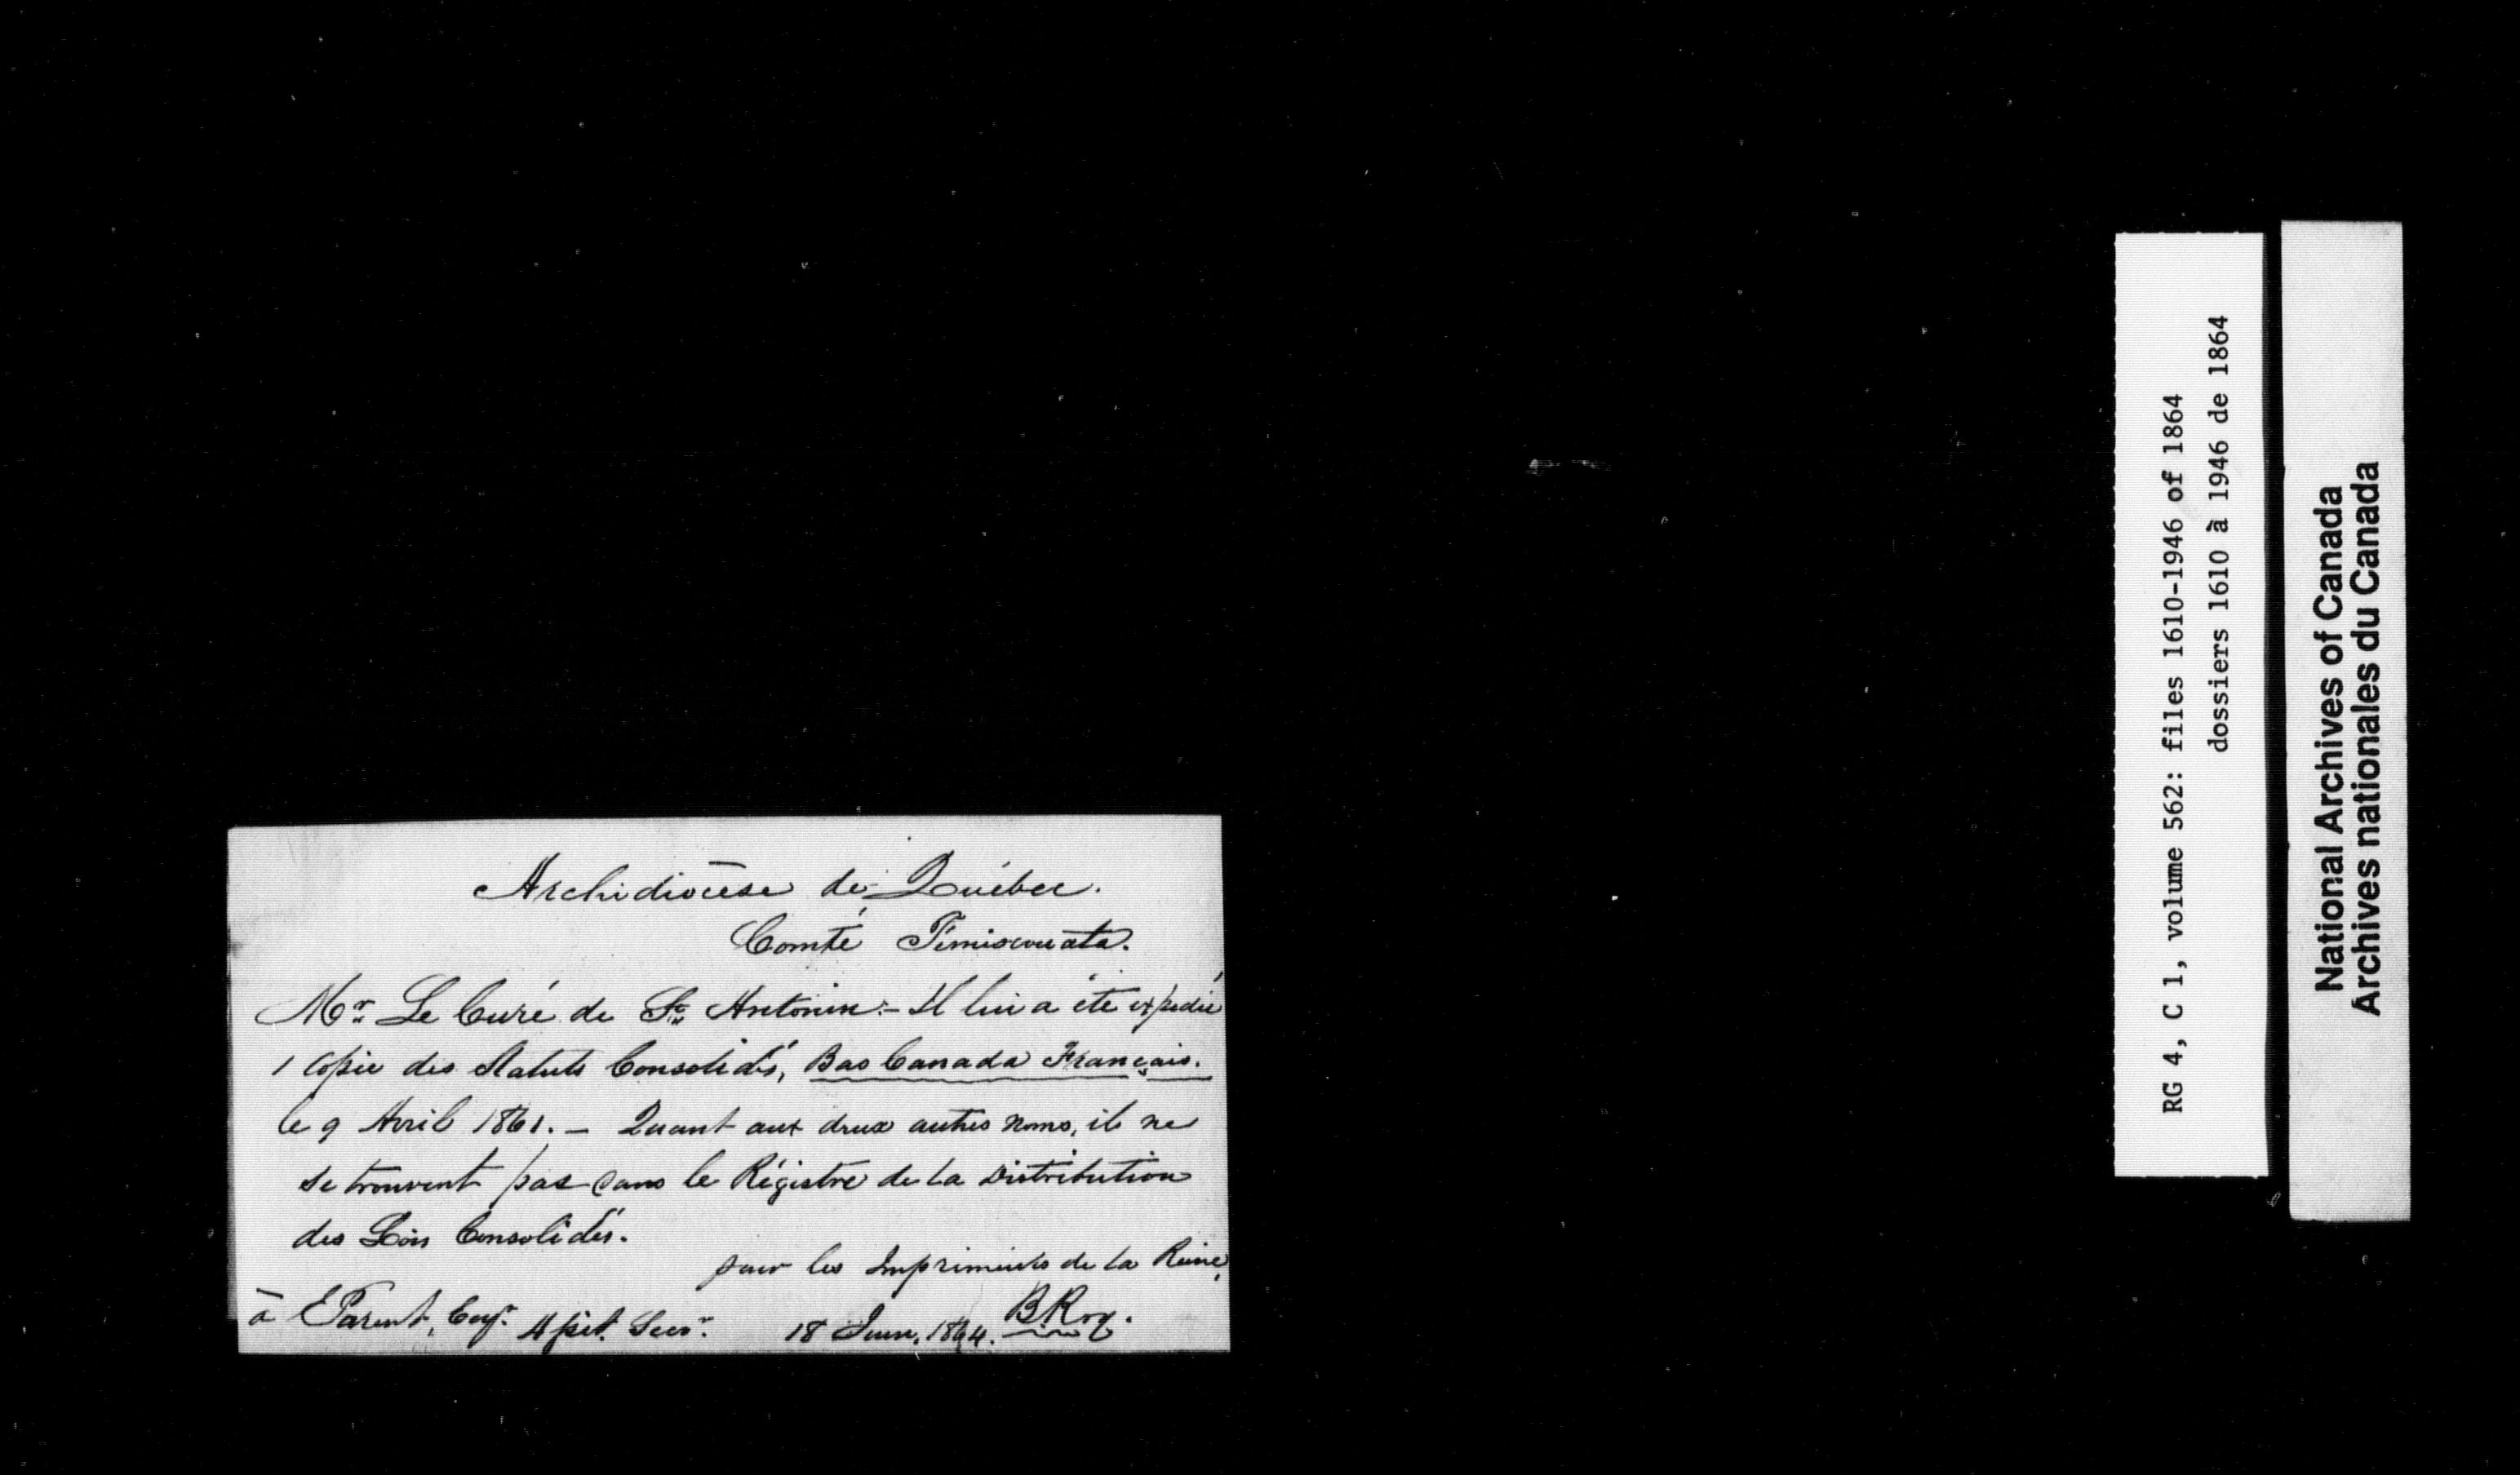 Archidiocèse de Québec.
Comté Témiscouata.
Mr. Le Curé de St. Antonin:- Il lui a été expédié
1 copie des Statuts Consolidés, Bas Canada Français.
le 9 Avril 1861. - Quant aux deux autres noms, ils ne
se trouvent pas dans le Régistre de la Distribution
des Lois Consolidés.
pour les Imprimeurs de la Reine,
à E Parent, Esqr. Asst. Secr. 18 Juin. 1864. B Roy.
RG 4, C 1, volume 562: files 1610-1946 of 1864
dossiers 1610 à 1946 de 1864
National Archives of Canada
Archives nationales du Canada